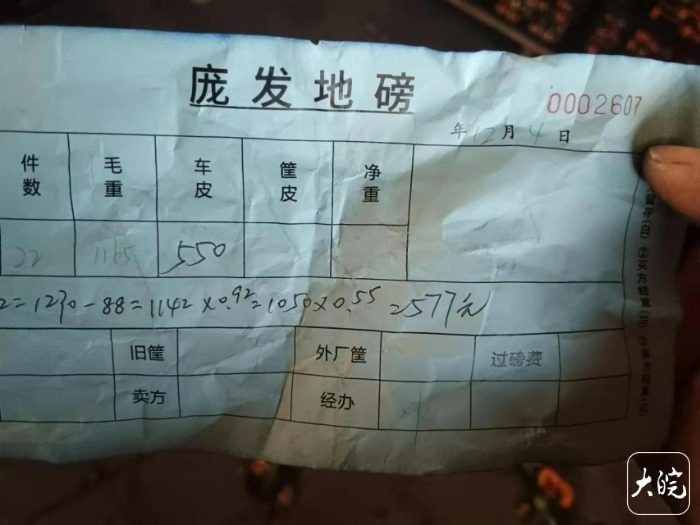 庞发地磅
0002607
年 12月 4日
件数 毛重 车皮 筐皮 净重
22 1165 550
2=1230-88=1142×0.92=1050×0.55=577元
旧筐 外厂筐 过磅费
卖方 经办
大皖